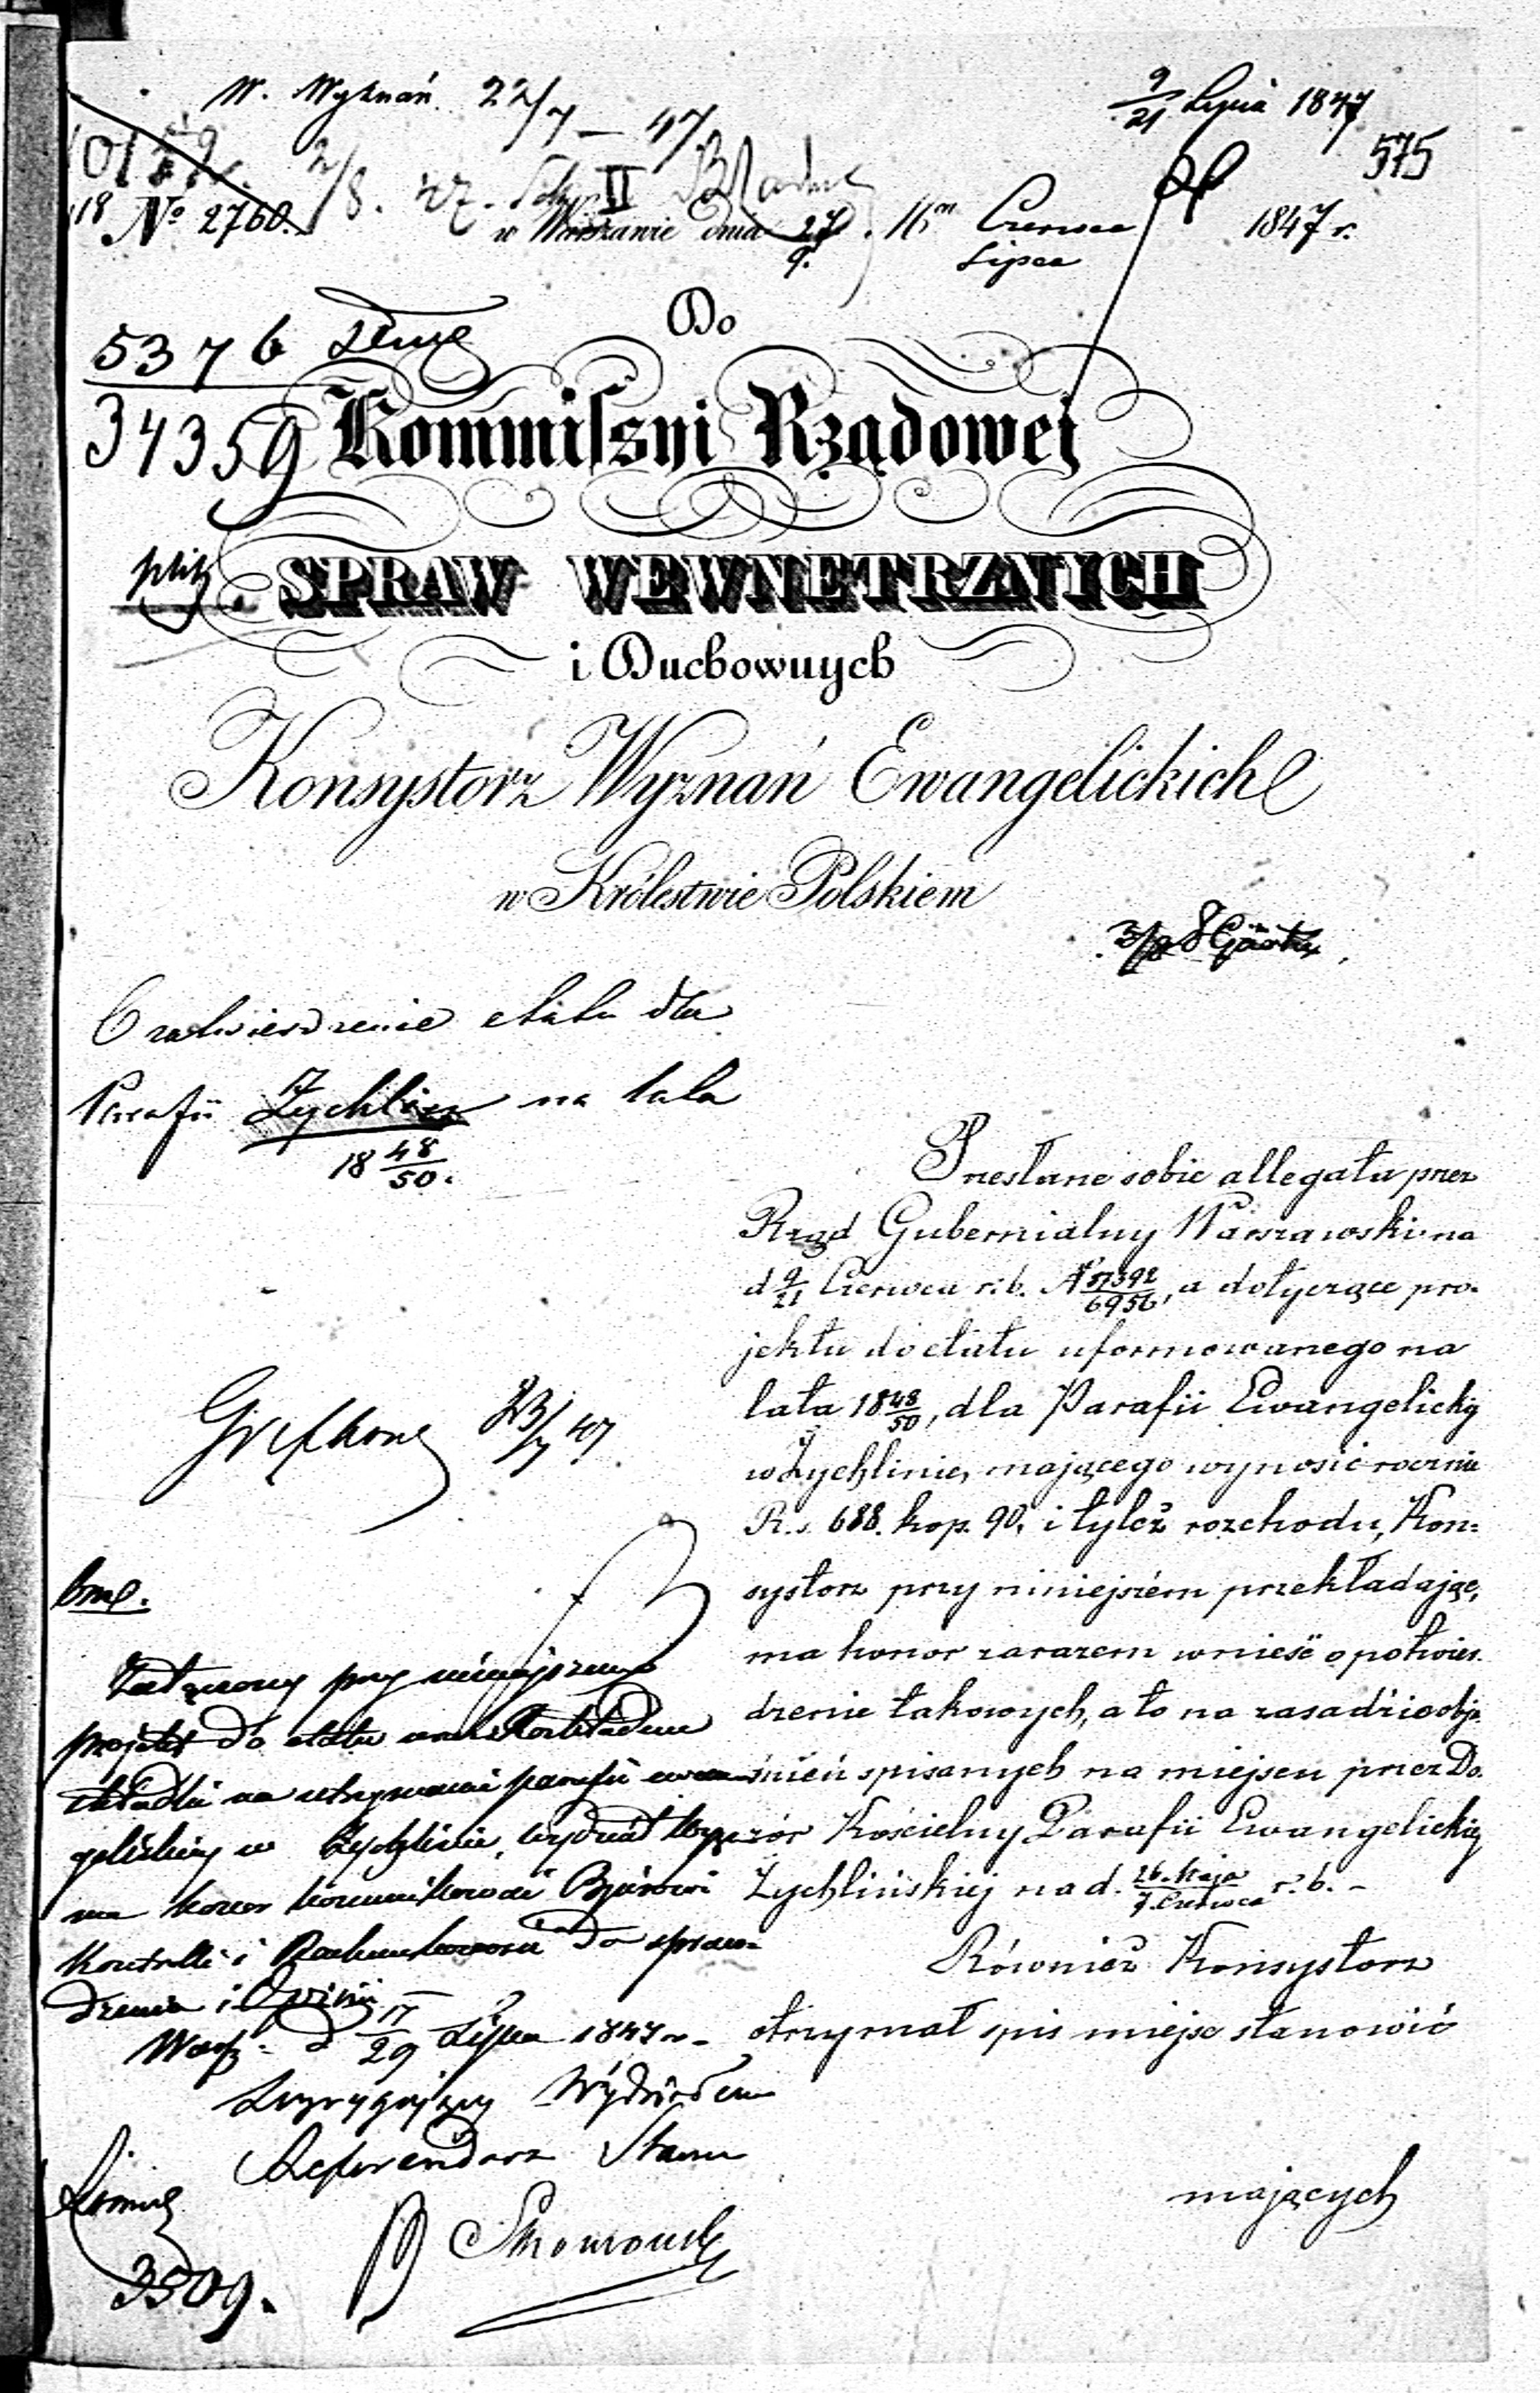 W. Wyznań 22/7 — 47
9/21 Lipca 1847
575
2/8. 47. II
No 2760.
w Warszawie dnia 27/9. 16m Czerwca/Lipca 1847 r.
Do
5376
34359
Kommissyi Rządowej
SPRAW WEWNETRZNYCH
i Duchownych
Konsystorz Wyznań Ewangelickich
w Królestwie Polskiem
O zatwierdzenie etatu dla
Parafii Żychlin na lata
18 48/50.
Przesłane sobie allegata przez
Rząd Gubernialny Warszawski na
d 9/21 Czerwca r. b. N 57392/6956, a dotyczące pro-
jektu do etatu uformowanego na
lata 18 48/50, dla Parafii Ewangelickiej
w Żychlinie, mającego wynosić rocznie
R. s. 688. kop. 90, i tyleż rozchodu, Kon-
systorz przy niniejszém przekładając,
ma honor zarazem wnieść o potwier-
dzenie takowych, a to na zasadzie obja-
śnień spisanych na miejscu przez Do-
zór Kościelny Parafii Ewangelickiej
Żychlińskiej na d. 26. Maja/7. Czerwca r. b. -
Również Konsystorz
otrzymał spis miejsc stanowić
mających
23/7 47
Załączony przy niniejszem
projekt do etatu wraz z rozkładem
składki na utrzymanie parafii ewan-
gelickiej w Żychlinie, Wydział Wyznań
ma honor kommunikować Bjurowi
Kontrolli i Rachunkowości do spraw-
dzenia i Opinii
Warsz. d 17/29 Lipca 1847 r.
Dyrygujący Wydziałem
Referendarz Stanu
3509.